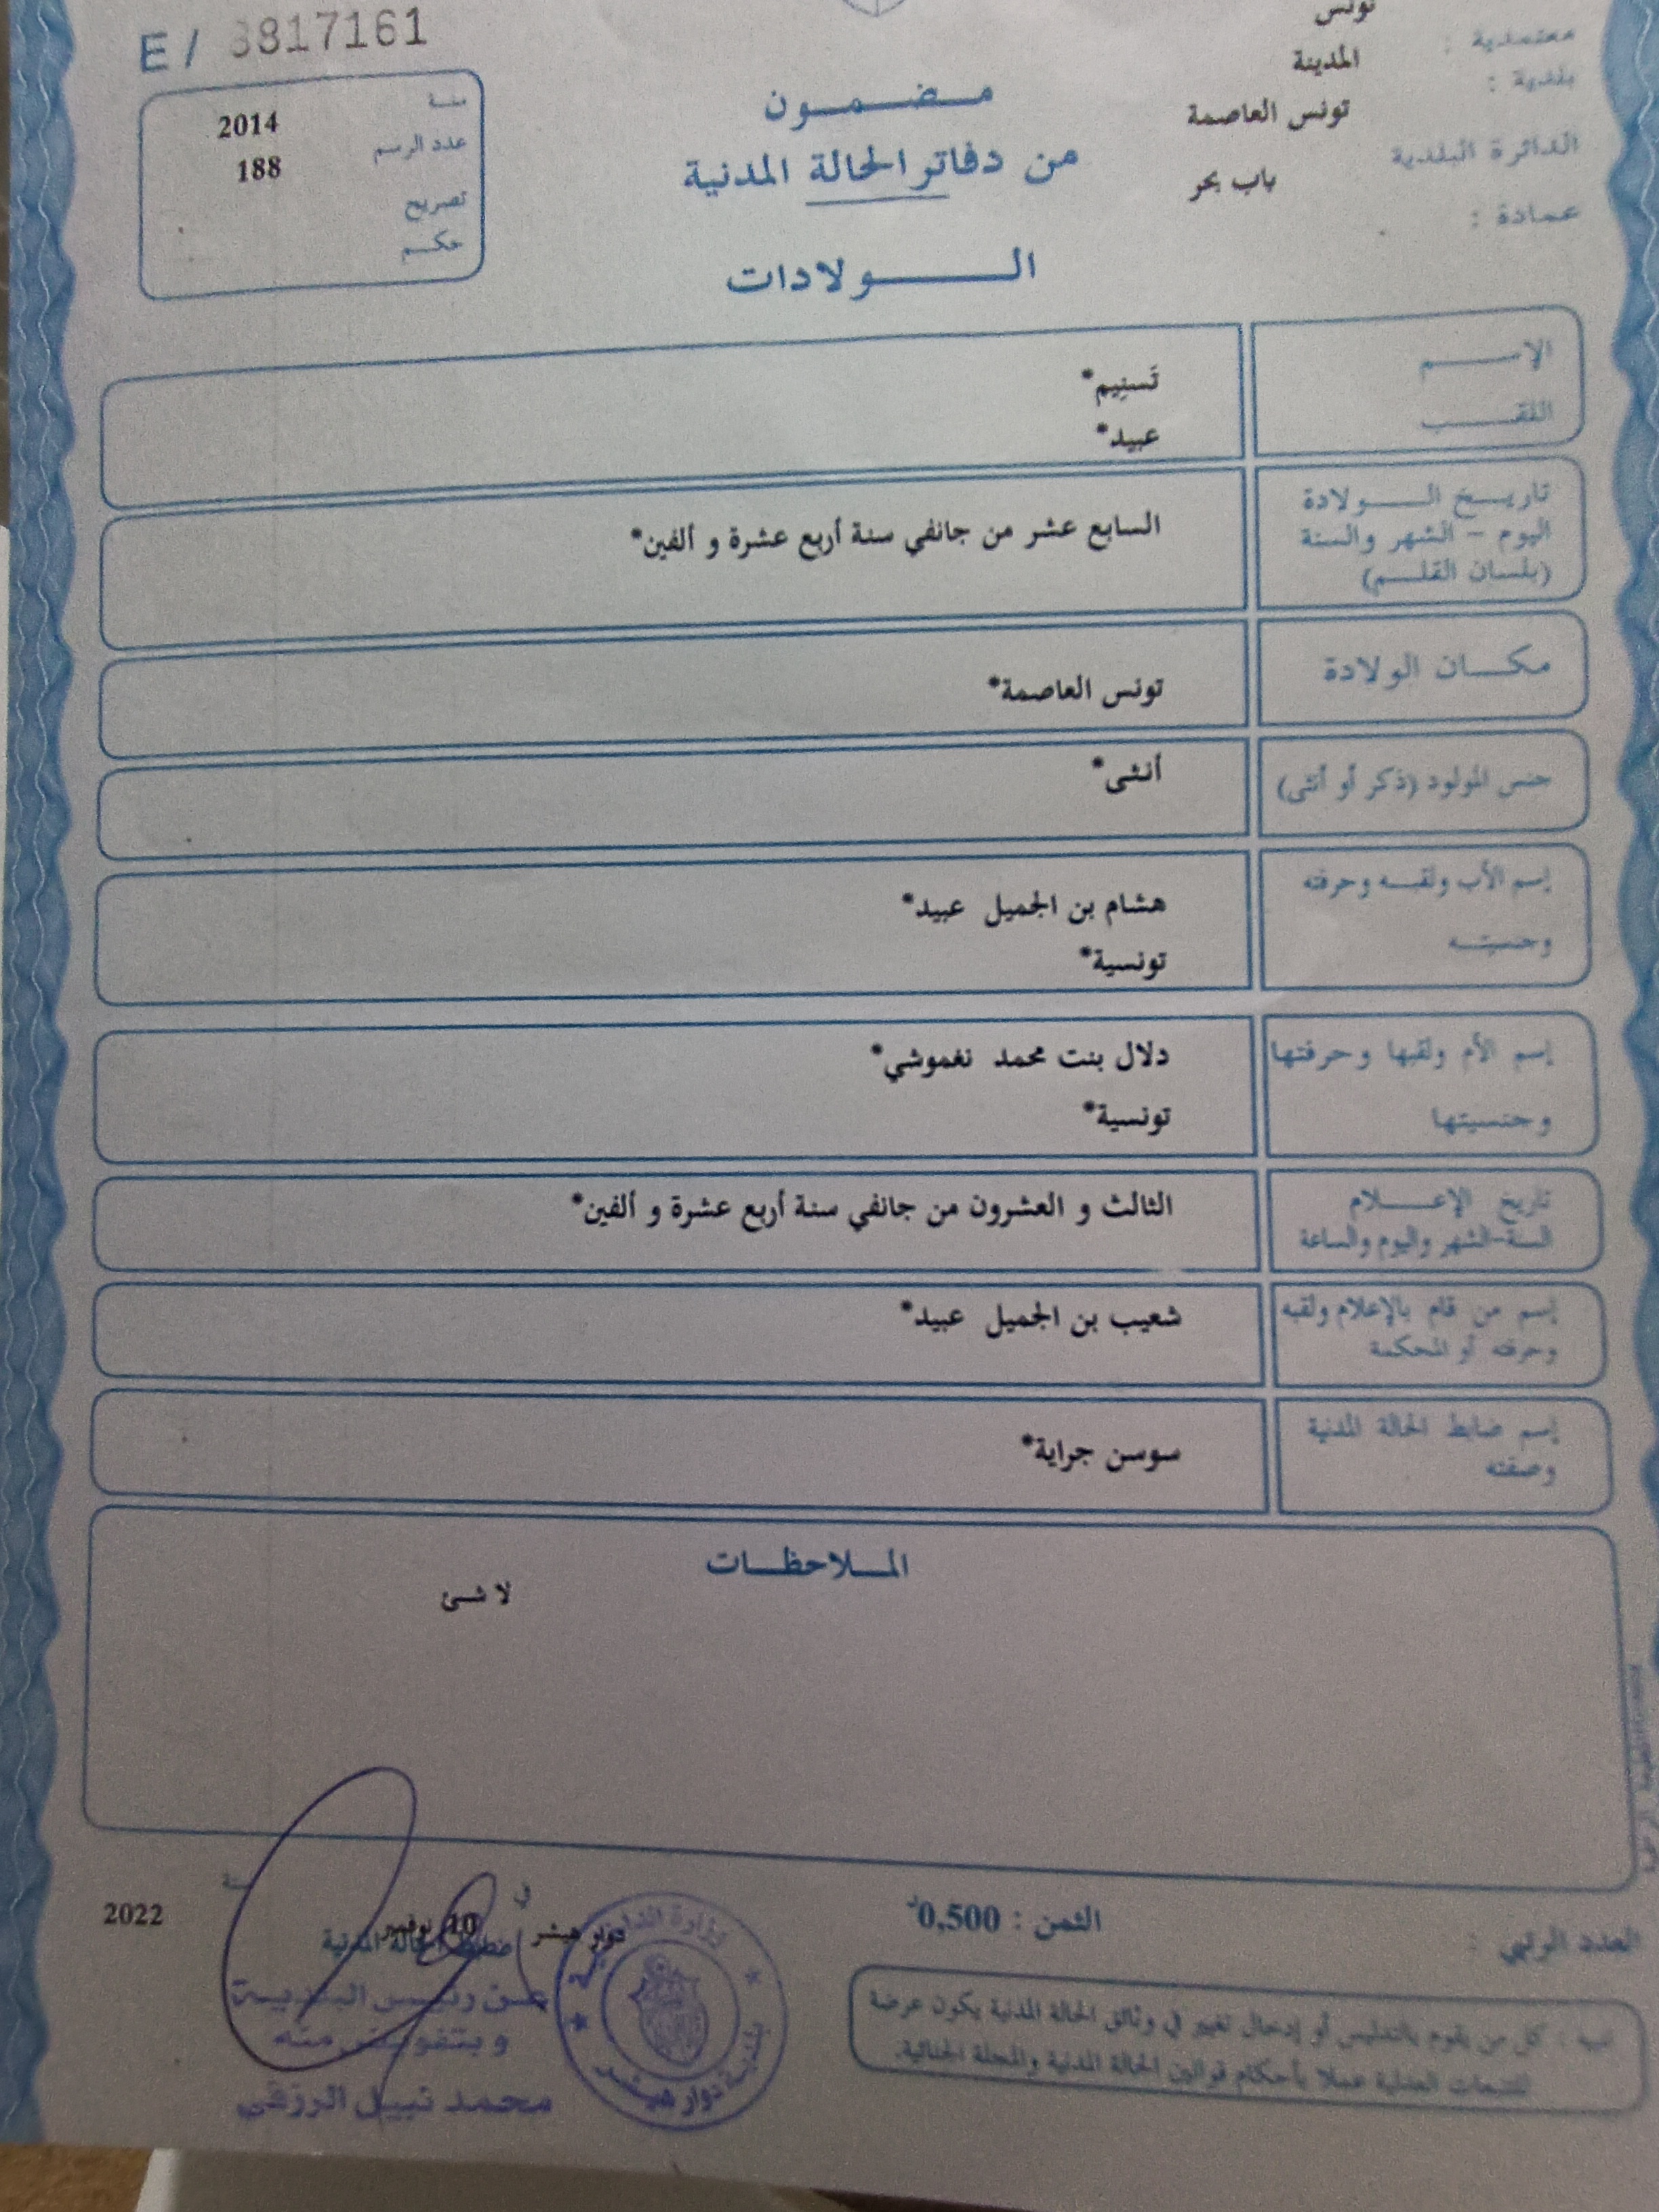 تونس
معتمدية :
المدينة
بلدية :
تونس العاصمة
الدائرة البلدية
باب بحر
عمادة :
E / 3817161
سنة
2014
عدد الرسم
188
تصريح
حكم
مضمون
من دفاتر الحالة المدنية
الولادات
الإسم
تَسنِيم*
اللقب
عبيد*
تاريخ الولادة
اليوم - الشهر والسنة
(بلسان القلم)
السابع عشر من جانفي سنة أربع عشرة و ألفين*
مكان الولادة
تونس العاصمة*
جنس المولود (ذكر أو أنثى)
أنثى*
إسم الأب ولقبه وحرفته
هشام بن الجميل عبيد*
وجنسيته
تونسية*
إسم الأم ولقبها وحرفتها
دلال بنت محمد نغموشي*
وجنسيتها
تونسية*
تاريخ الإعلام
السنة-الشهر واليوم والساعة
الثالث و العشرون من جانفي سنة أربع عشرة و ألفين*
إسم من قام بالإعلام ولقبه
وحرفته أو المحكمة
شعيب بن الجميل عبيد*
إسم ضابط الحالة المدنية
وصفته
سوسن جراية*
الملاحظات
لا شئ
العدد الرتبي :
الثمن : 0,500د
دوار هيشر في 10 نوفمبر سنة 2022
ضابط الحالة المدنية
عن رئيس البلدية
وبتفويض منه
محمد نبيل الرزقي
وزارة الداخلية
بلدية دوار هيشر
تنبيه : كل من يقوم بالتدليس أو إدخال تغيير في وثائق الحالة المدنية يكون عرضة
للتتبعات العدلية عملا بأحكام قوانين الحالة المدنية والمجلة الجنائية.